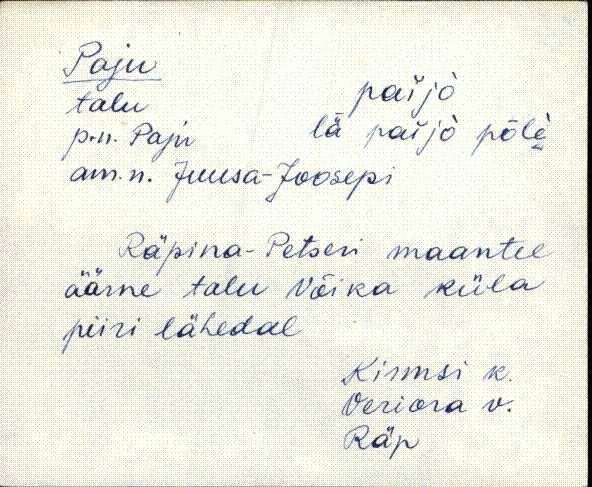 Paju
talu paĭjò
p.n. Paju lä paĭjò põlè
am.n. Juusa-Joosepi
Räpina-Petseri maantee
äärne talu Võika küla
piiri lähedal
Kirmsi k.
Veriora v.
Räp